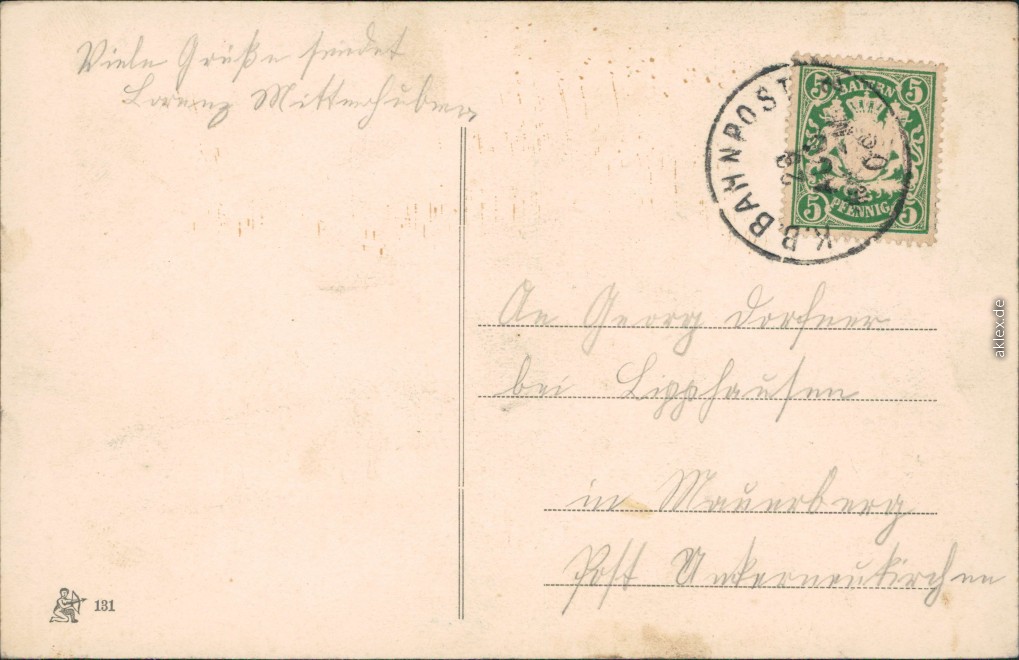 Viele Grüße sendet
Lorenz Mitterhuber
K.B.BAHNPOST
5 BAYERN 5
5 PFENNIG 5
An Georg Dorfner
bei Lipphausen
in Mauerberg
Post Unterneukirchen
131
aklex.de